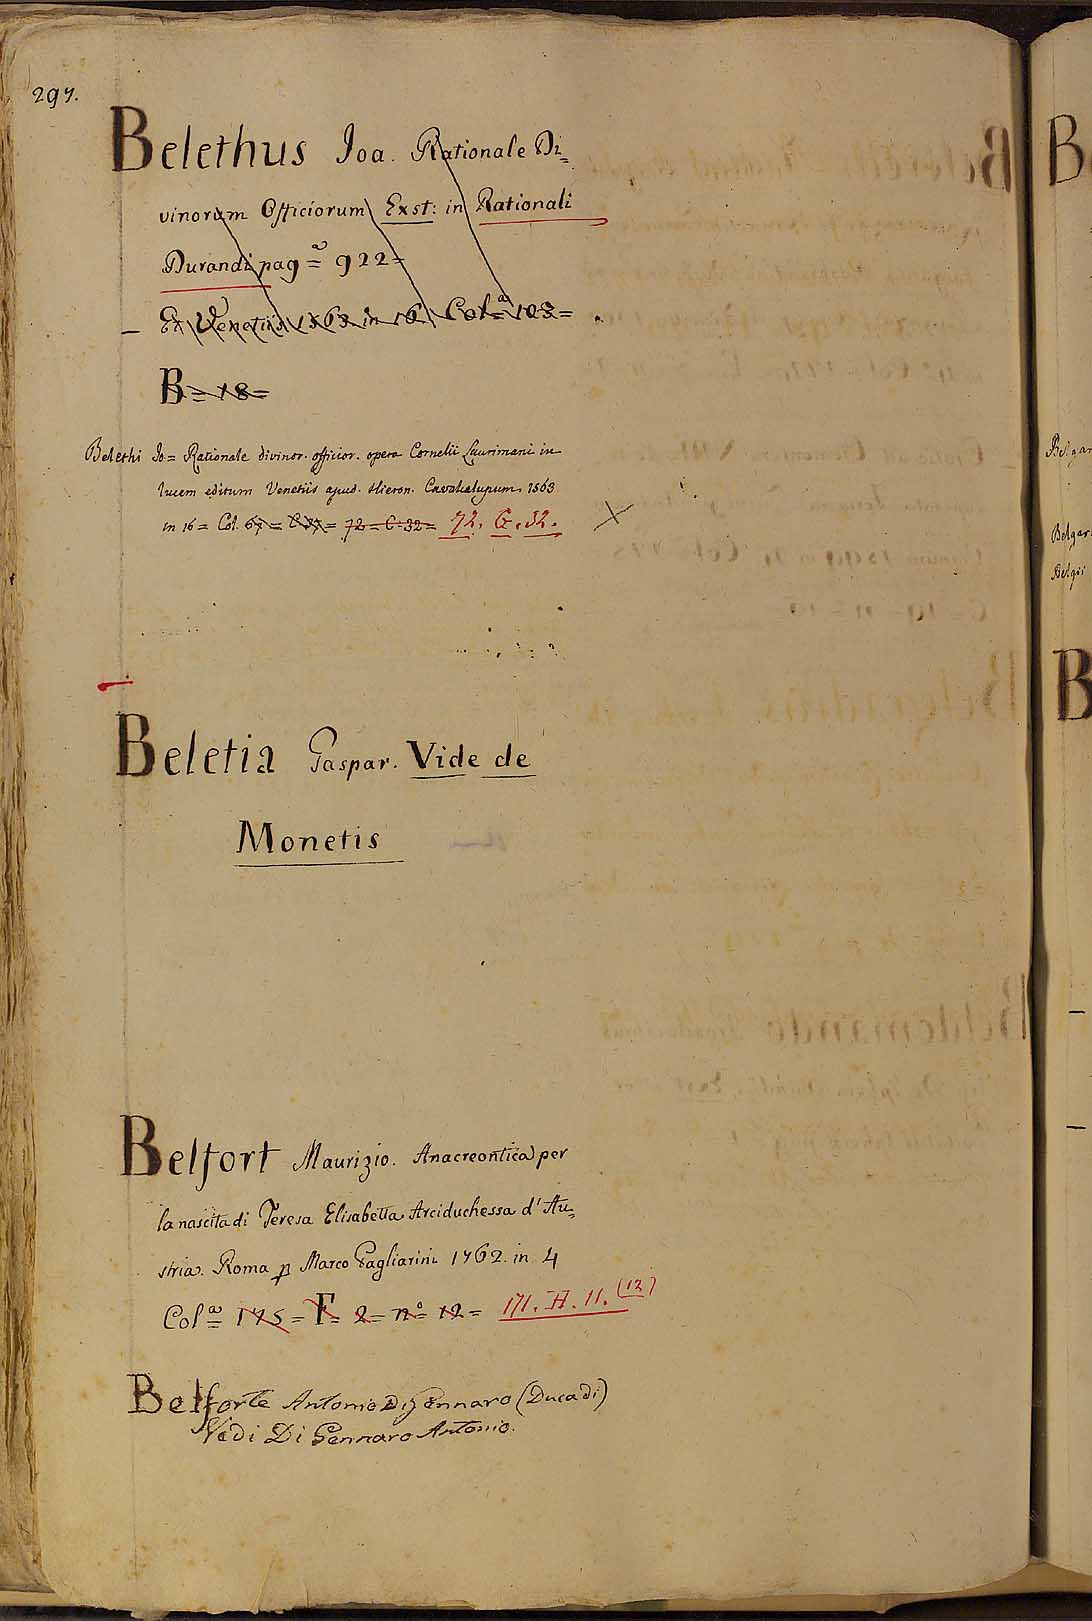 297.
Belethus Joa. Rationale Di=
vinorum Officiorum Exst: in Rationali
Durandi pag.ª = 922 =
Et Venetiis 1563 in 16 Col.ª 103 =
B = 18 =
Belethi Io = Rationale divinor. officior. opera Cornelii Laurimani in
lucem editum Venetiis apud. Hieron. Cavalcalupum. 1563
in 16 = Col. 67 = C 37 = 72 = C = 32 = 72. G. 32.
Beletia Gaspar. Vide de
Monetis
Belfort Maurizio. Anacreontica per
la nascita di Teresa Elisabetta Arciduchessa d'Au=
stria. Roma p Marco Pagliarini 1762. in 4
Col.ª 175 = F = 2 = n.º 12 = 171. H. 11. (12)
Belforte Antonio Di Gennaro (Duca di)
Vedi Di Gennaro Antonio.
B
Belgar
Belgar.
Belgii
B